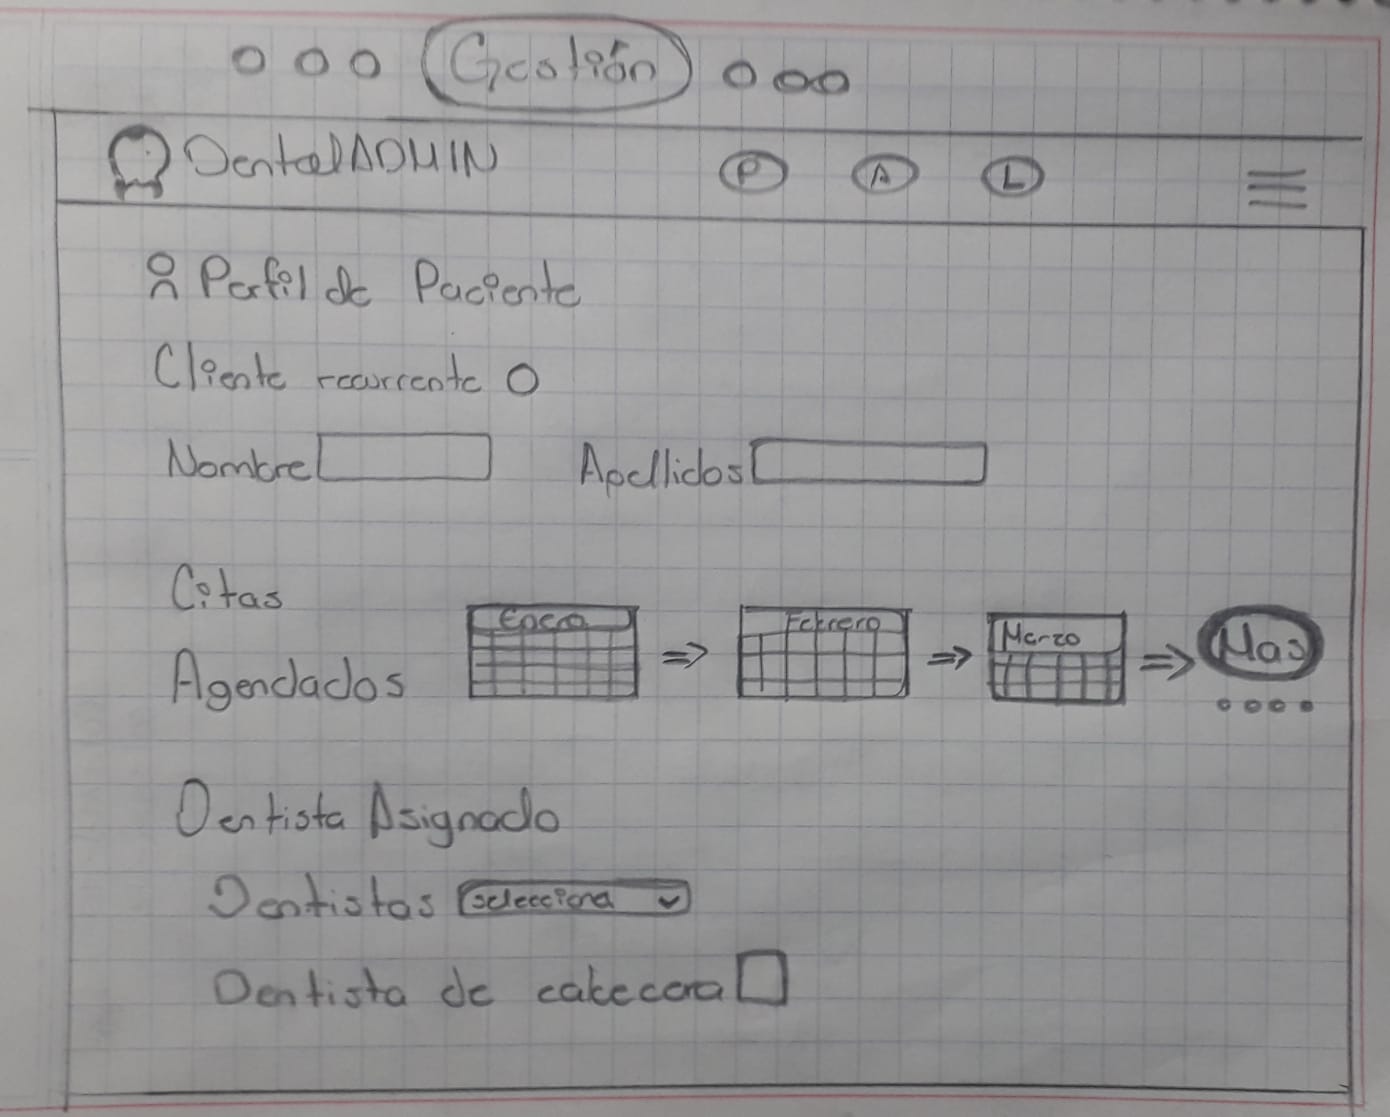 Gestión
DentalADMIN P A L
Perfil de Paciente
Cliente recurrente
Nombre Apellidos
Citas
Agendados
Enero Febrero Marzo Mas
Dentista Asignado
Dentistas selecciona
Dentista de cabecera